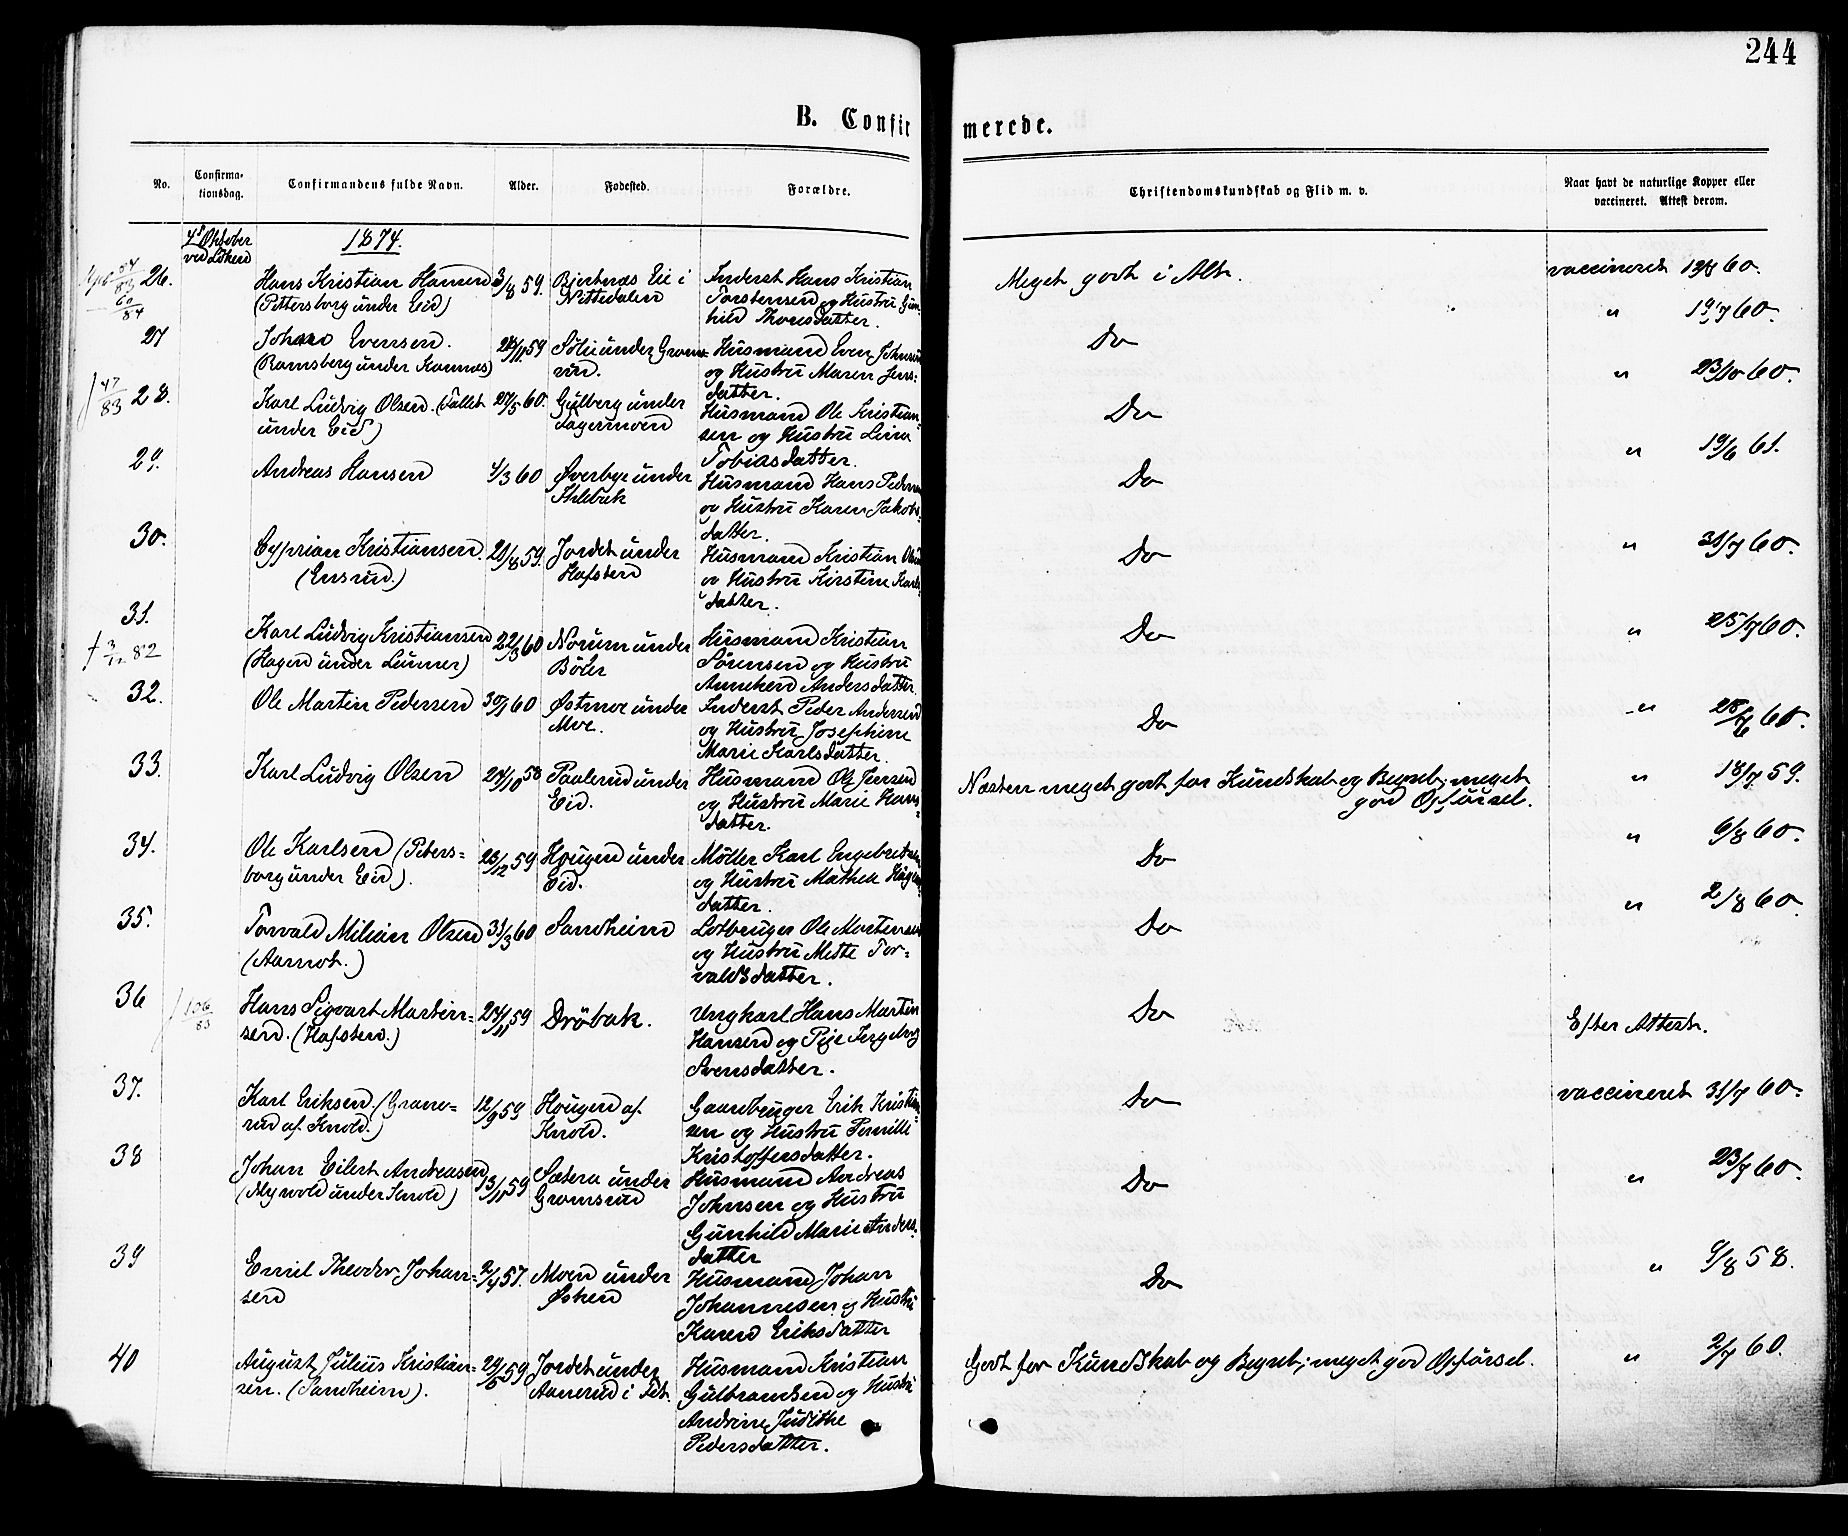 244
B. Confir
merede.
No.
Confirma-
tionsdag.
Confirmandens fulde Navn.
Alder.
Fødested.
Forældre.
Christendomskundskab og Flid m. v.
Naar havt de naturlige Kopper eller
vaccineret. Attest derom.
Oktober
ved
1874.
26.
Hans Kristian Hansen
(Pettersborg under Eid)
3/8 59.
Bjertnæs Eie i
Nittedalen
Inderst Hans Kristian
Torstensen og Hustru Gun-
hild Thorsdatter.
Meget godt i Alt.
vaccineret
60.
27
Evensen.
(Ramsberg under Kamnæs)
59
under
Husmand Even Johnsen
og Hustru Maren Jens-
datter.
Do
"
19/7 60.
47/83
28.
Karl Ludvig Olsen. (Fallet
under Eid)
27/5 60.
Gulberg under
Husmand Ole Kristian-
sen og Hustru Lina
Tobiasdatter.
Do
"
23/10 60.
29.
Andreas Hansen
4/3 60
Øverbye under
Husmand Hans
og Hustru Karen Jakobs-
datter.
Do
"
19/6 61.
30.
Cyprian Kristiansen.
(Ensrud.)
59.
Jordet under
Hafsten
Husmand Kristian
og Hustru Kirstine
datter.
Do
"
31/7 60.
31.
† 3/12 82
Karl Ludvig Kristiansen
(Hagen under
22/3 60
Norum under
Bøler
Husmand Kristian
Sørensen og Hustru
Anneken Andersdatter.
Do
"
25/7 60.
32.
Ole Martin Pedersen
60
Østmoe under
Moe.
Inderst Peder Andersen
og Hustru Josephine
Marie Karlsdatter.
Do
"
60.
33.
Karl Ludvig Olsen
24/10 58
Paalerud under
Eid.
Husmand Ole Jensen
og Hustru Marie Hans-
datter.
Næsten meget godt for Kundskab og Begreb; meget
god Opførsel.
"
18/7 59.
34.
Ole Karlsen (Peters-
borg under Eid).
23/12 59
Hougen under
Eid.
Møller Karl Engebretsen
og Hustru Mathea
datter.
Do
"
6/8 60.
35.
Torvald Milian Olsen
(Aamot.)
31/3 60
Sandheim
Ole Martinsen
og Hustru Mette Tor-
valdsdatter.
Do
"
2/8 60.
36
106/83
Hans Sigvart Martin-
sen. (Hafsten.)
24/11 59
Drøbak.
Ungkarl Hans Martin
Hansen og Pige Ingeborg
Svensdatter.
Do
Efter Attest.
37.
Karl Eriksen. (Gram-
rud af Knold.)
12/9 59
Hougen af
Knold.
Gaardbruger Erik Kristian-
sen og Hustru Pernille
Kristoffersdatter.
Do
vaccineret 31/7 60.
38
Johan Eilert Andreasen
(Myrvold under Knold)
13/11 59
Sætera under
Gramsrud
Husmand Andreas
Johnsen og Hustru
Gunhild Marie Anders-
datter
Do
"
23/7 60.
39
Emil Theodor Johan-
sen
2/4 57.
Moen under
Østen
Husmand Johan
Johannesen og Hustru
Karen Eriksdatter
Do
"
9/8 58.
40
August Julius Kristian-
sen. (Sandheim).
24/5 59
Jordet under
Aanerud i
Husmand Kristian
Gulbrandsen og Hustru
Andrine Judithe
Pedersdatter.
Godt for Kundskab og Begreb; meget god Opførsel.
"
2/7 60.